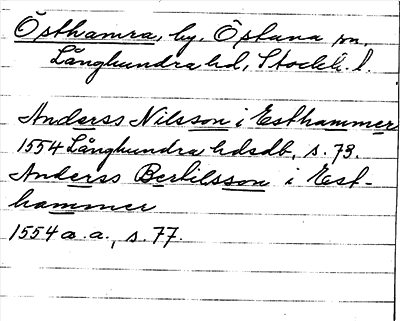 Östhamra, by, Östuna sn.
Långhundra hd, Stockh. l.
Anderss Nilsson i Esthammer
1554 Långhundra hdsdb, s. 73.
Anderss Bertilsson i Est-
hammer
1554 a. a., s. 77.